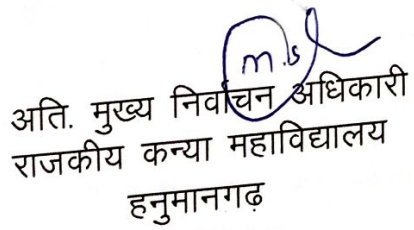 अति. मुख्य निर्वाचन अधिकारी
राजकीय कन्या महाविद्यालय
हनुमानगढ़